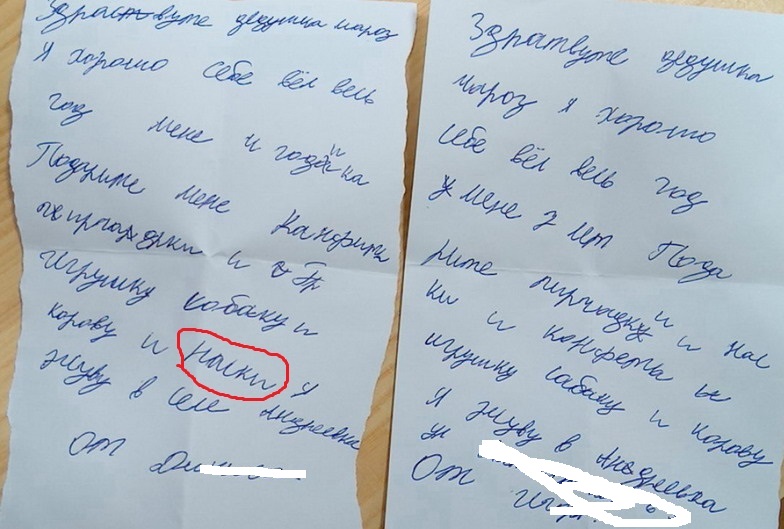 Здраствуте дедушка мароз
Я хорошо себе вёл весь
год мене и годика
Подурите мене Канфриты
и
игрушку собаку и
корову и наски Я
жуву в селе Андреевка
от
Здратвуте дедушка
мароз я хорошо
себе вёл весь год
у мене 7 лет Пода
рите пирчадку и и нас
ки и конфеты и
игрушку сабаку и корову
Я жуву в Андреевка
От